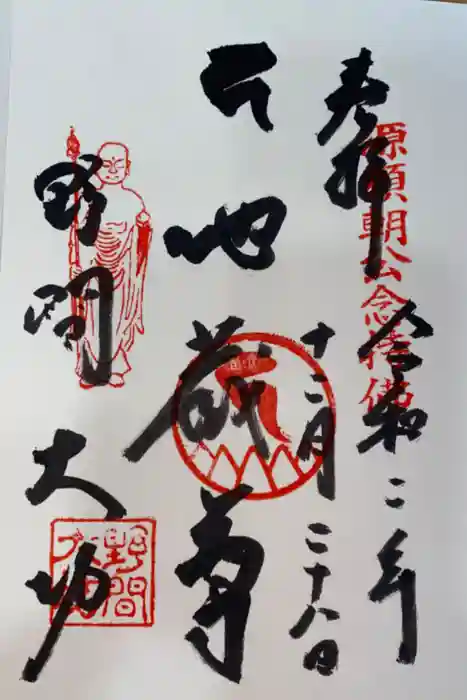 奉拝
源頼朝公念持佛
令和二年
十二月二十八日
地蔵尊
野間大坊
野間
大坊